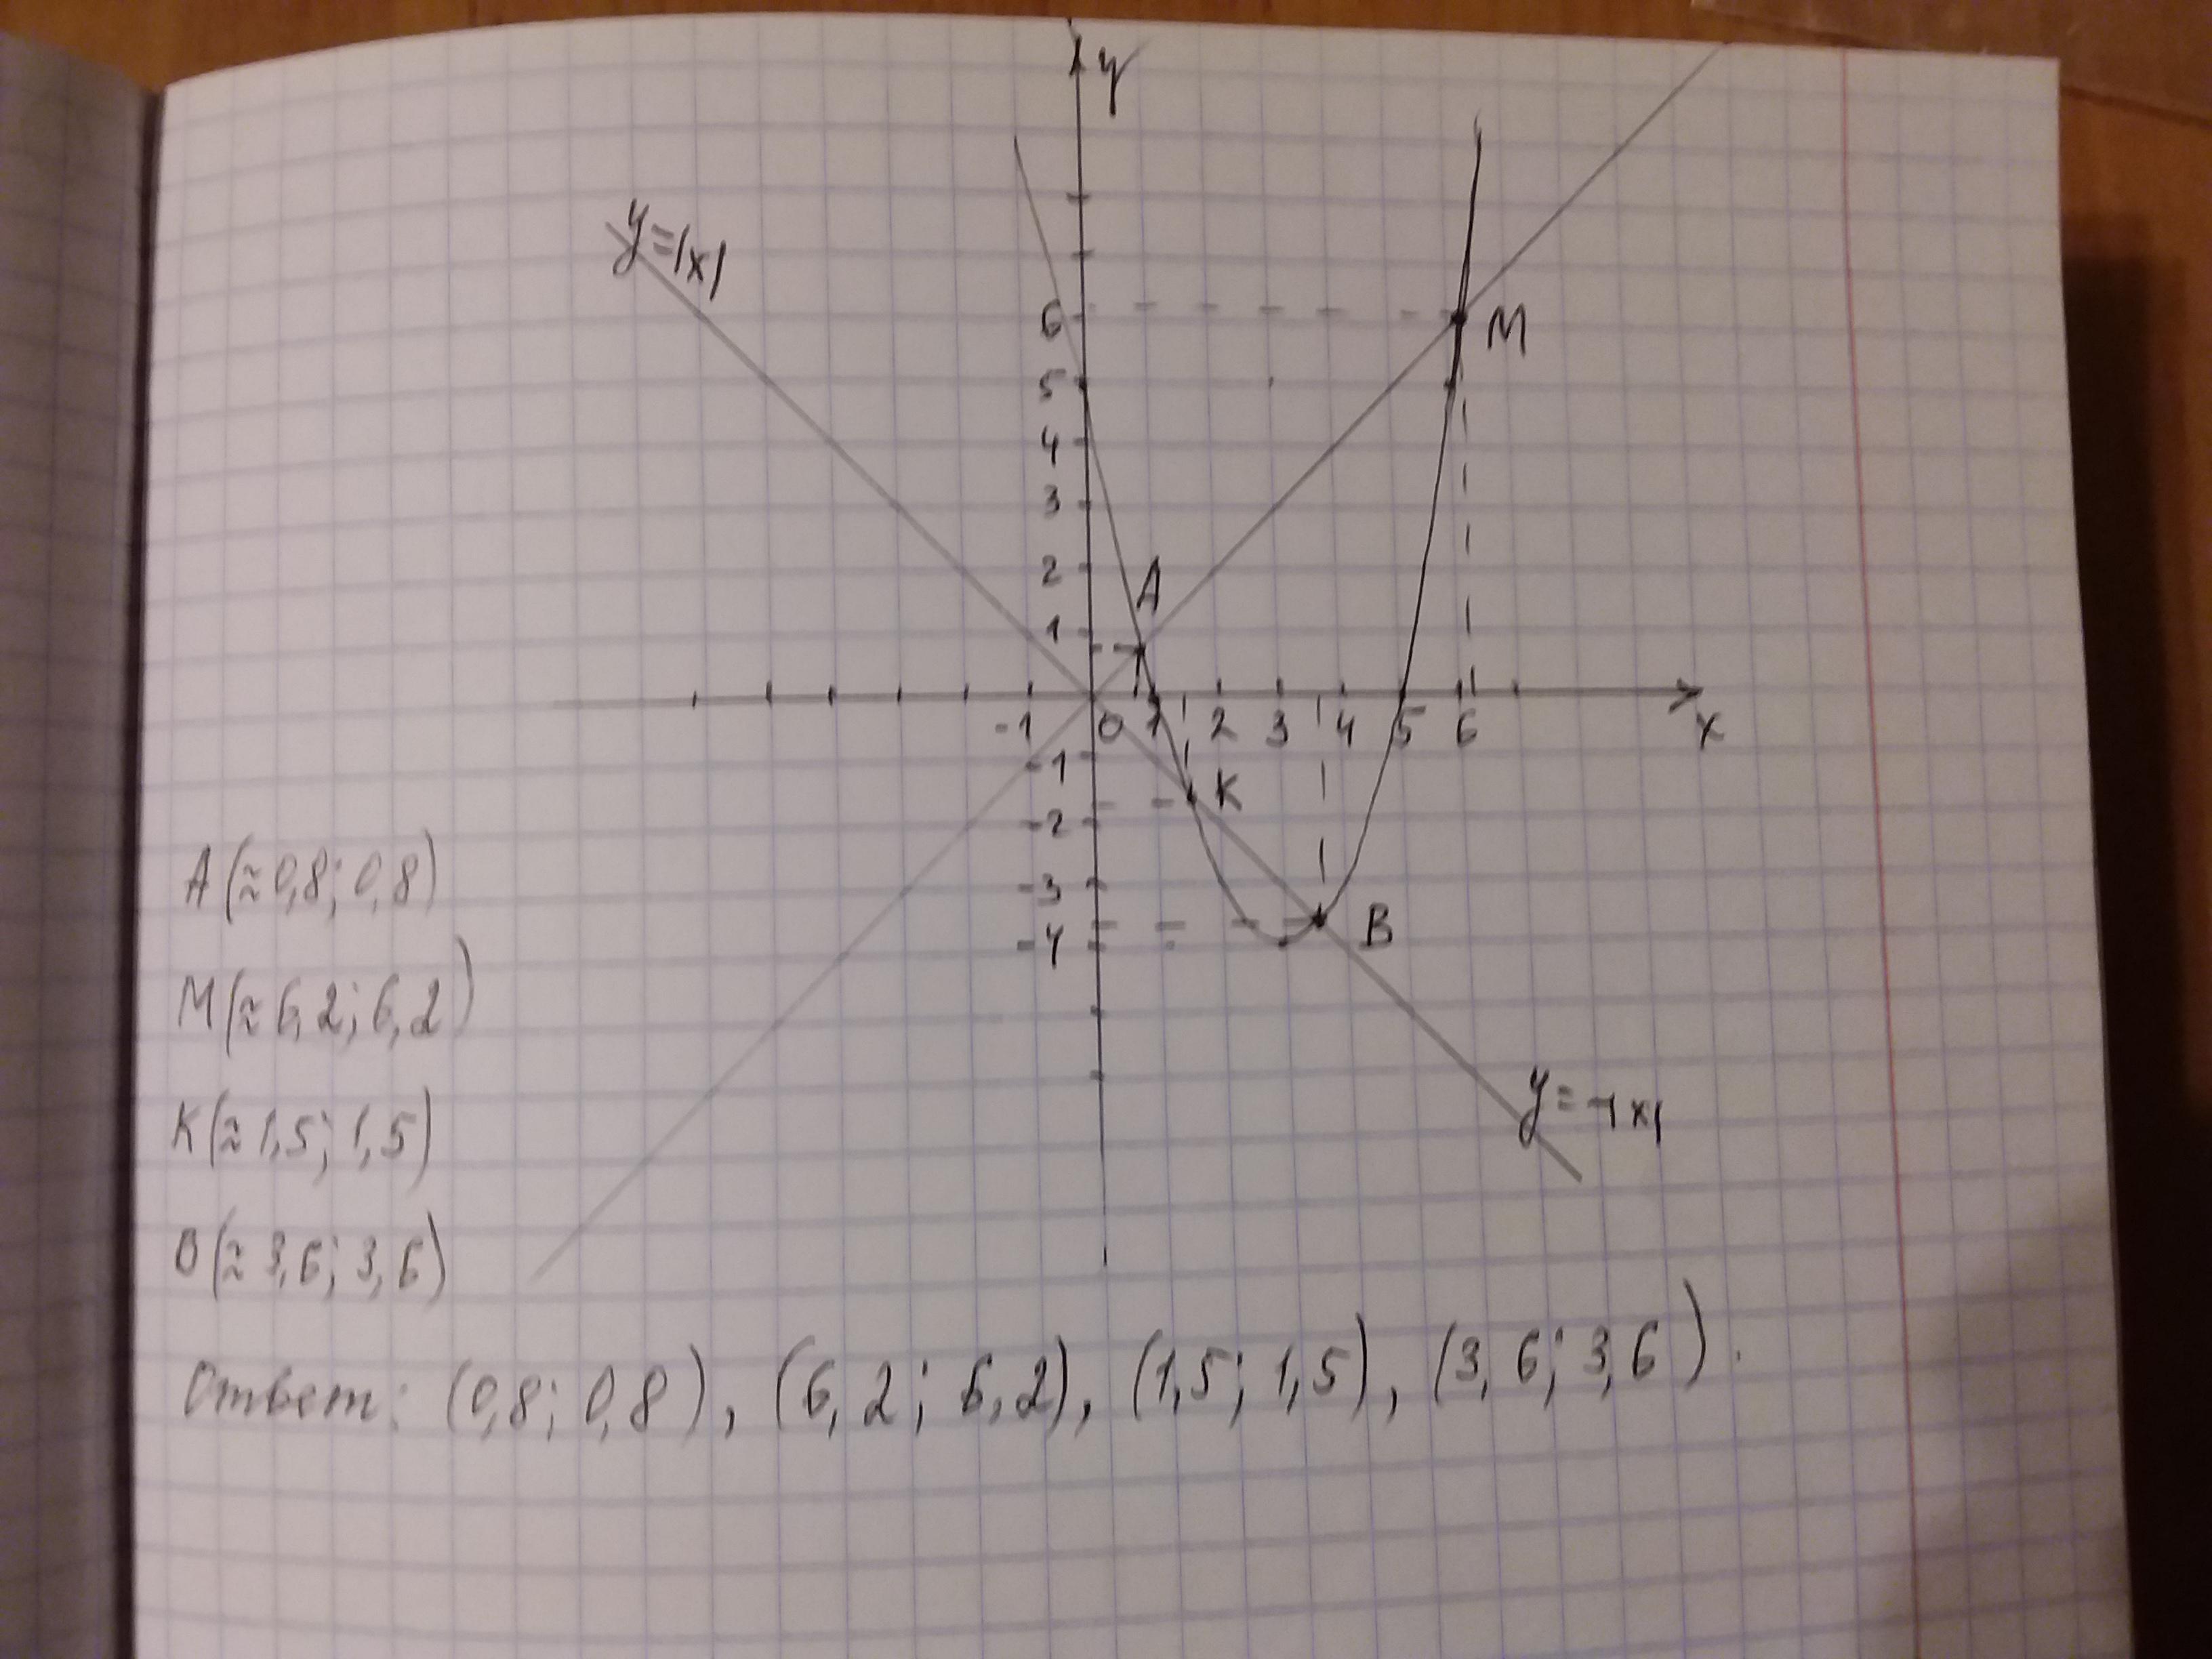 y
y=|x|
6
M
5
4
3
2
A
1
-1 0 1 2 3 4 5 6 x
-1
K
-2
-3
-4
B
y=-|x|
A(≈0,8; 0,8)
M(≈6,2; 6,2)
K(≈1,5; 1,5)
B(≈3,6; 3,6)
Ответ: (0,8; 0,8), (6,2; 6,2), (1,5; 1,5), (3,6; 3,6).